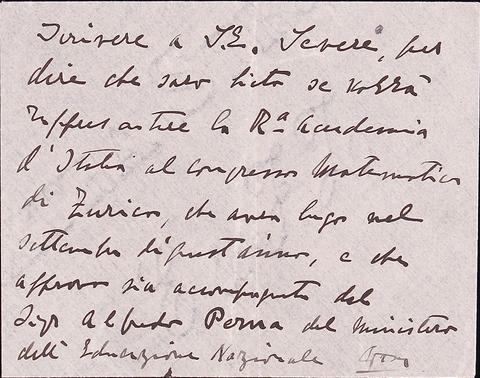 Scrivere a S.E. Severi, per
dire che sarò lieto se vorrà
rappresentare la Rª Accademia
d'Italia al congresso Matematico
di Zurigo, che avrà luogo nel
settembre di quest'anno, e che
approvo sia accompagnato dal
Sigr Alfredo Perna del Ministero
dell'Educazione Nazionale